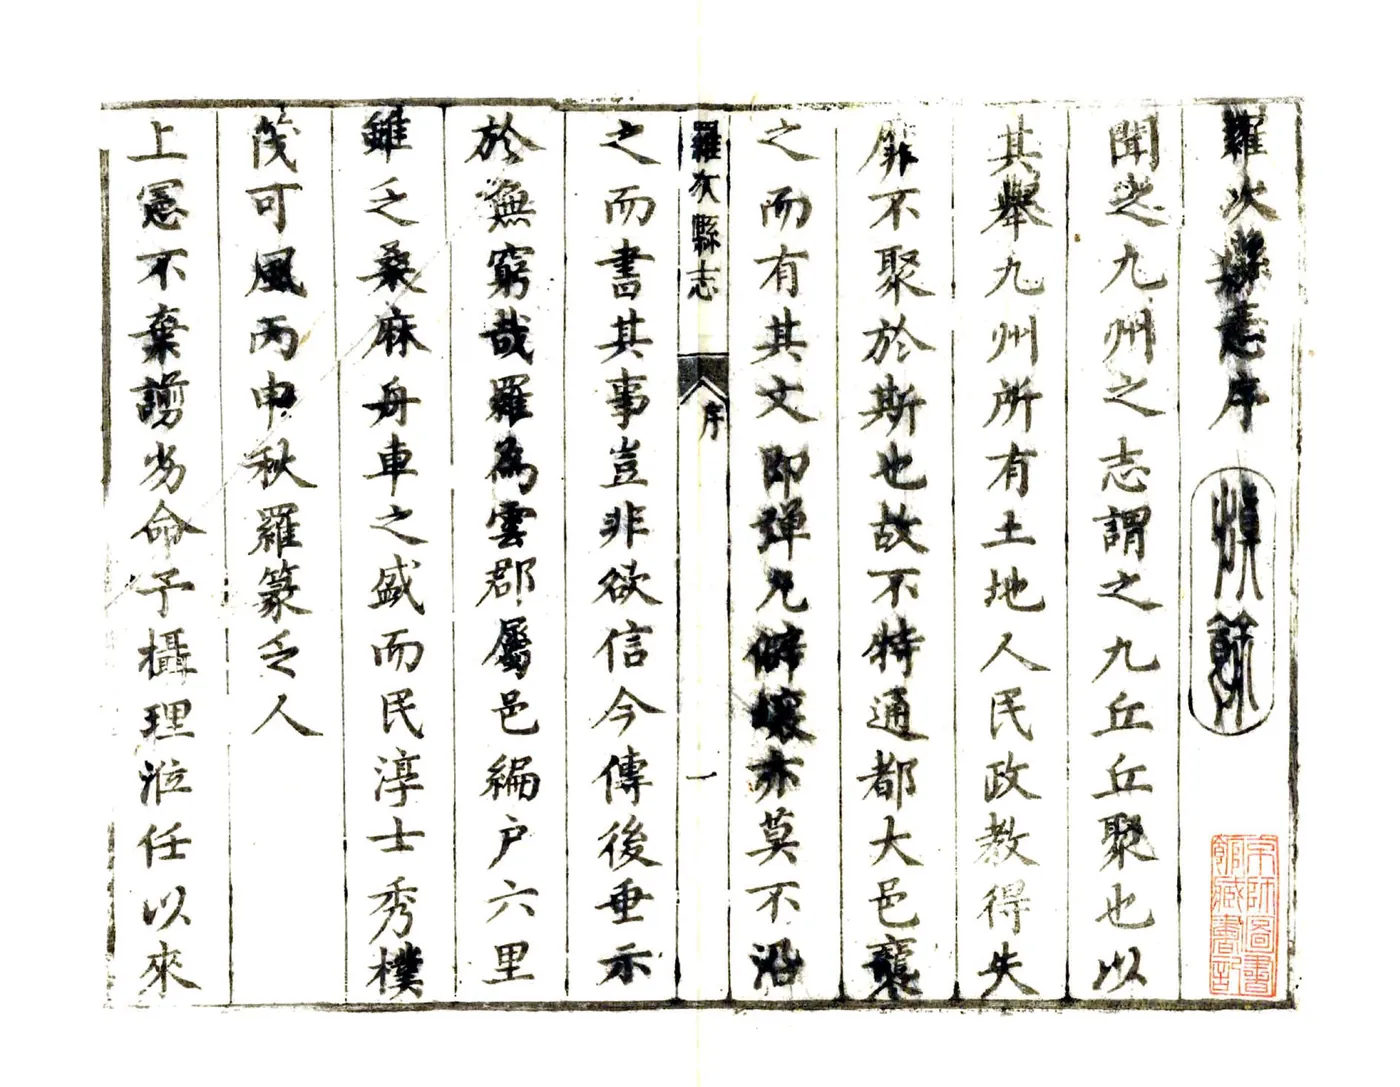 羅次縣志序
慎餘
聞之九州之志謂之九丘丘聚也以
其舉九州所有土地人民政教得失
靡不聚於斯也故不特通都大邑襲
之而有其文即彈丸僻壤亦莫不沿
羅次縣志
序
一
之而書其事豈非欲信今傳後垂示
於無窮哉羅為雲郡屬邑編户六里
雖乏桑麻舟車之盛而民淳士秀樸
茂可風丙申秋羅篆乏人
上憲不棄謭劣命予攝理涖任以來
京師圖書館藏書記